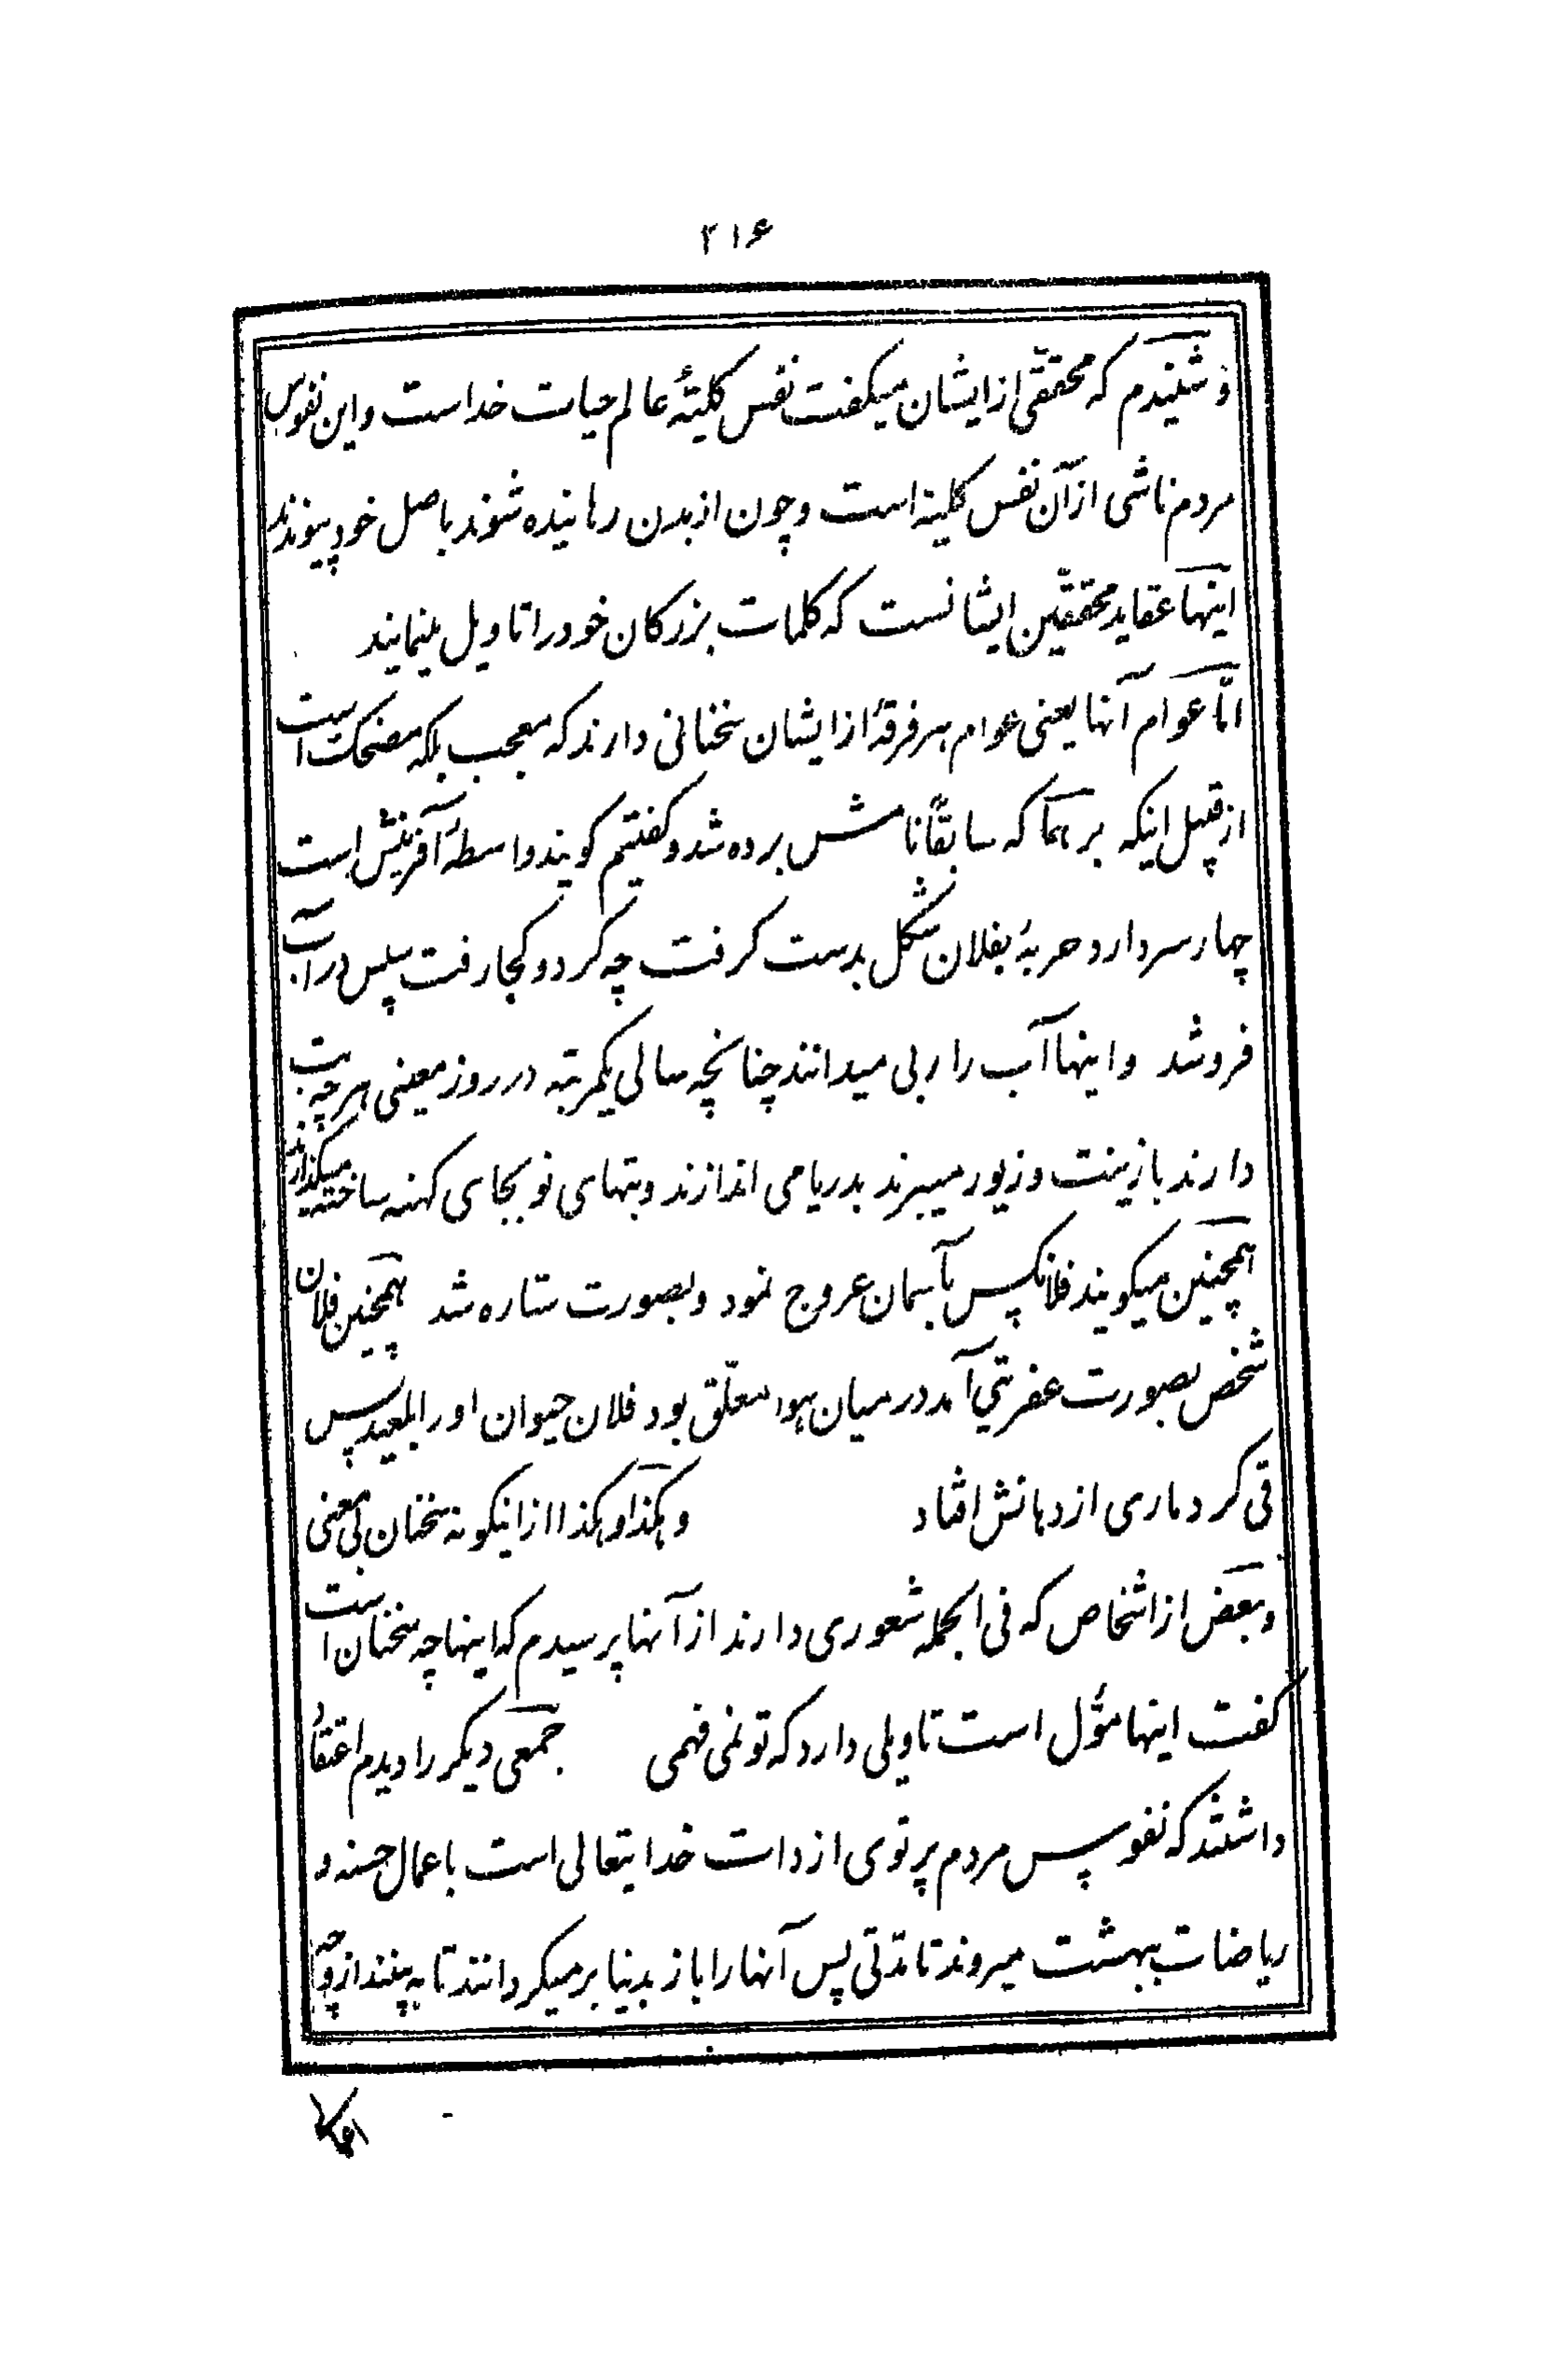 ۲۱۶
و شنیدم که محققّی از ایشان میکفت نفس کلیّهٔ عالم حیات خداست و این نفوس
مردم ناشی از آن نفس کلیة است و چون از بدن رهانیده شوند باصل خود پیوندند
اینها عقاید محققّین ایشانست که کلمات بزرکان خود را تاویل مینمایند
امّا عوام آنها یعنی عوام هر فرقهٔ از ایشان سخنانی دارند که معجب بلکه مضحک است
از قبیل اینکه برهما که سابقاً نامش برده شد و کفتیم کویند واسطهٔ آفرینش است
چهار سر دارد و حربهٔ بفلان شکل بدست کرفت چه کرد و کجا رفت سپس در آب
فرو شد و اینها آب را ربی میدانند چنانچه سالی یکمرتبه در روز معینی هر چه بت
دارند با زینت و زیور میبرند بدریا می اندازند و بتهای نو بجای کهنه ساخته میکذارند
همچنین میکویند فلانکس بآسمان عروج نمود و بصورت ستاره شد همچنین فلان
شخص بصورت عفریتی آمد در میان هوا معلّق بود فلان حیوان او را بلعید پس
قی کرد ماری از دهانش افتاد و هکذا و هکذا از اینکونه سخنان بی معنی
و بعض از اشخاص که فی الجمله شعوری دارند از آنها پرسیدم که اینها چه سخنان است
کفت اینها مؤّل است تاویلی دارد که تو نمی فهمی جمعی دیکر را دیدم اعتقاد
داشتند که نفوس مردم پرتوی از ذات خدایتعالی است باعمال حسنه و
ریاضات ببهشت میروند تا مدّتی پس آنها را باز بدنیا بر میکردانند تا به بینند از چه